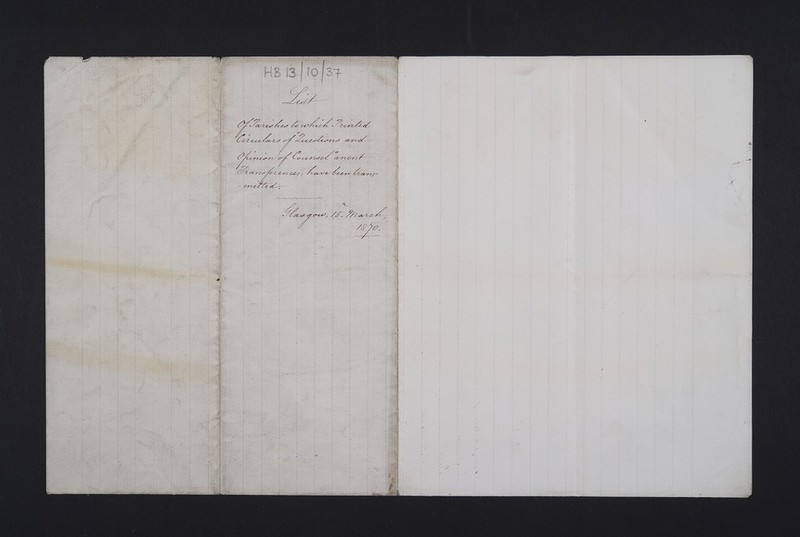 HB 13/10/37
List
Of Parishes to which Printed
Circulars of "Questions and
Opinion of Counsel" anent
Transferences, have been trans-
-mitted.
Glasgow, 15th March,
1870.